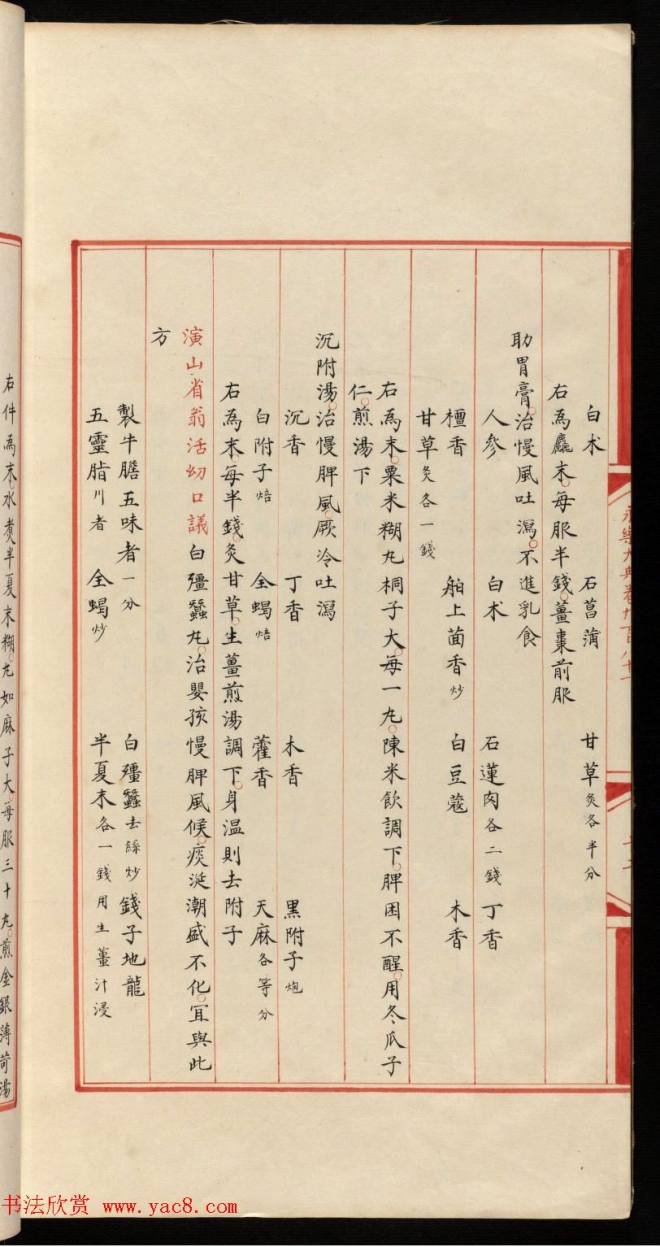 白朮 石菖蒲 甘草炙各半分
右為麤末每服半錢薑棗前服
助胃膏治慢風吐瀉不進乳食
人參 白朮 石蓮肉各二錢 丁香
檀香 舶上茴香炒 白豆蔻 木香
甘草炙各一錢
右為末粟米糊丸桐子大每一丸陳米飲調下脾困不醒用冬瓜子
仁煎湯下
沉附湯治慢脾風厥冷吐瀉
沉香 丁香 木香 黑附子炮
白附子焙 全蝎焙 藿香 天麻各等分
右為末每半錢炙甘草生薑煎湯調下身溫則去附子
演山省翁活幼口議白殭蠶丸治嬰孩慢脾風候痰涎潮盛不化宜與此
方
製牛膽五味者一分 白殭蠶去絲炒 錢子地龍
五靈脂川者 全蝎炒 半夏末各一錢用生薑汁浸
右件為末水煮半夏末糊丸如麻子大每服三十丸煎金銀薄荷湯
永樂大典卷九百八十一
书法欣赏 www.yac8.com